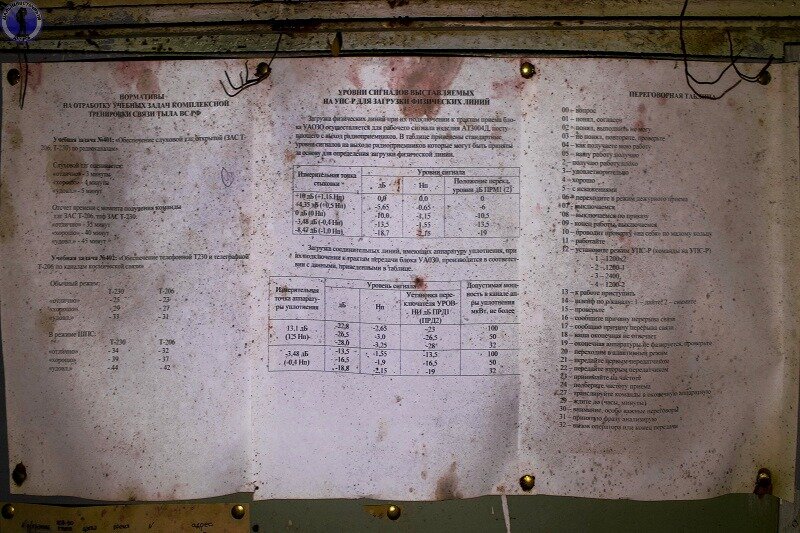 НОРМАТИВЫ
НА ОТРАБОТКУ УЧЕБНЫХ ЗАДАЧ КОМПЛЕКСНОЙ
ТРЕНИРОВКИ СВЯЗИ ТЫЛА ВС РФ
Учебная задача №401: «Обеспечение слуховой связи открытой (ЗАС Т-
206, Т-230) по радиоканалам».
Слуховой
«отлично» - 3 минуты
«хорошо» - 4 минуты
«удовл.» - 5 минут
Отсчет времени с момента получения команды
тлг ЗАС Т-206, тлф ЗАС Т-230:
«отлично» - 35 минут
«хорошо» - 40 минут
«удовл.» - 45 минут
Учебная задача №402: «Обеспечение телефонной Т230 и телеграфной
Т-206 по каналам космической связи»
Обычный режим:
Т-230 Т-206
«отлично» - 25 - 23
«хорошо» - 29 - 27
«удовл.» - 33 - 31
В режиме ШПС:
Т-230 Т-206
«отлично» - 34 - 32
«хорошо» - 39 - 37
«удовл.» - 44 - 42
УРОВНИ СИГНАЛОВ ВЫСТАВЛЯЕМЫХ
НА УПС-Р ДЛЯ ЗАГРУЗКИ ФИЗИЧЕСКИХ ЛИНИЙ
Загрузка физических линий при их подключении к трактам приема бло-
ка УА030 осуществляется для рабочего сигнала изделия АТ3004Д, посту-
пающего с выхода радиоприемников. В таблице приведены стандартные
уровни сигналов на выходе радиоприемников которые могут быть приняты
за основу для определения загрузки физической линии.
Измерительная точка стыковки
Уровни сигнала
дБ Нп Положение перекл. уровни дБ ПРМ1 (2)
+10 дБ (+1,15 Нп) 0,0 0,0 0
+4,35 дБ (+0,5 Нп) -5,65 -0,65 -6
0 дБ (0 Нп) -10,0 -1,15 -10,5
-3,48 дБ (-0,4 Нп) -13,5 -1,55 -13,5
-8,42 дБ (-1,0 Нп) -18,7 -19
Загрузка соединительных линий, имеющих аппаратуру уплотнения, при
их подключении к трактам передачи блока УА030, производится в соответс-
твии с данными, приведенными в таблице.
Измерительная точка аппарату-ры уплотнения
Уровень сигнала
Допустимая мощ-ность в канале ап-ры уплотнения мкВт, не более
дБ Нп Установка пере-ключателя УРОВ-НИ дБ ПРД1 (ПРД2)
13,1 дБ (1,5 Нп)
-22,8 -2,65 -23 100
-26,5 -3,0 -26,5 50
-28,0 -3,25 -28 32
-3,48 дБ (-0,4 Нп)
-13,5 -1,55 -13,5 100
-16,5 -1,9 -16,5 50
-18,8 -2,15 -19 32
ПЕРЕГОВОРНАЯ ТАБЛИЦА
00 – вопрос
01 – понял, согласен
02 – понял, выполнить не могу
03 – не понял, повторите, проверьте
04 – как получаете мою работу
05 – вашу работу получаю
2 – получаю работу плохо
3 – удовлетворительно
4 – хорошо
5 – с искажениями
06 – перейдите в режим дежурного приема
07 – выключаемся
08 – выключаемся по приказу
09 – конец работы, выключаемся
10 – проводим проверку «на себя» по низкому кольцу
11 – работайте
12 – установите режим УПС-Р (команды на УПС-Р)
- 1 –
- 2 – 1200-1
- 3 – 2400
- 4 – 1200-2
13 – к работе приступить
14 – шлейф по
15 – проверьте
16 – сообщите причину перерыва связи
17 – сообщаю причину перерыва связи
18 – ваша оконечная не отвечает
19 – оконечная аппаратура не фазируется, проверьте
20 – переходим в адаптивный режим
21 – передайте первым передатчиком
22 – передайте вторым передатчиком
23 – принимайте на частоте
24 – подберите частоту приема
27 – транслируйте команды в оконечную аппаратную
29 – ждите до (часы, минуты)
30 – внимание, особо важные переговоры
31 – принятую фразу анализирую
32 – вызов оператора или конец передачи